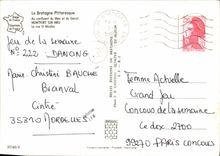 La Bretagne Pittoresque
Au confluent du Meu et du Garun
MONTFORT SUR MEU
La rue St Nicolas
Jeu de la semaine
N° 222 : DANCING
Marie-Christine BAUCHE
Bronval
Cintré
35310 MORDELLES
Femme Actuelle
Grand Jeu
Concours de la semaine
Cedex 2700
99270 PARIS CONCOURS